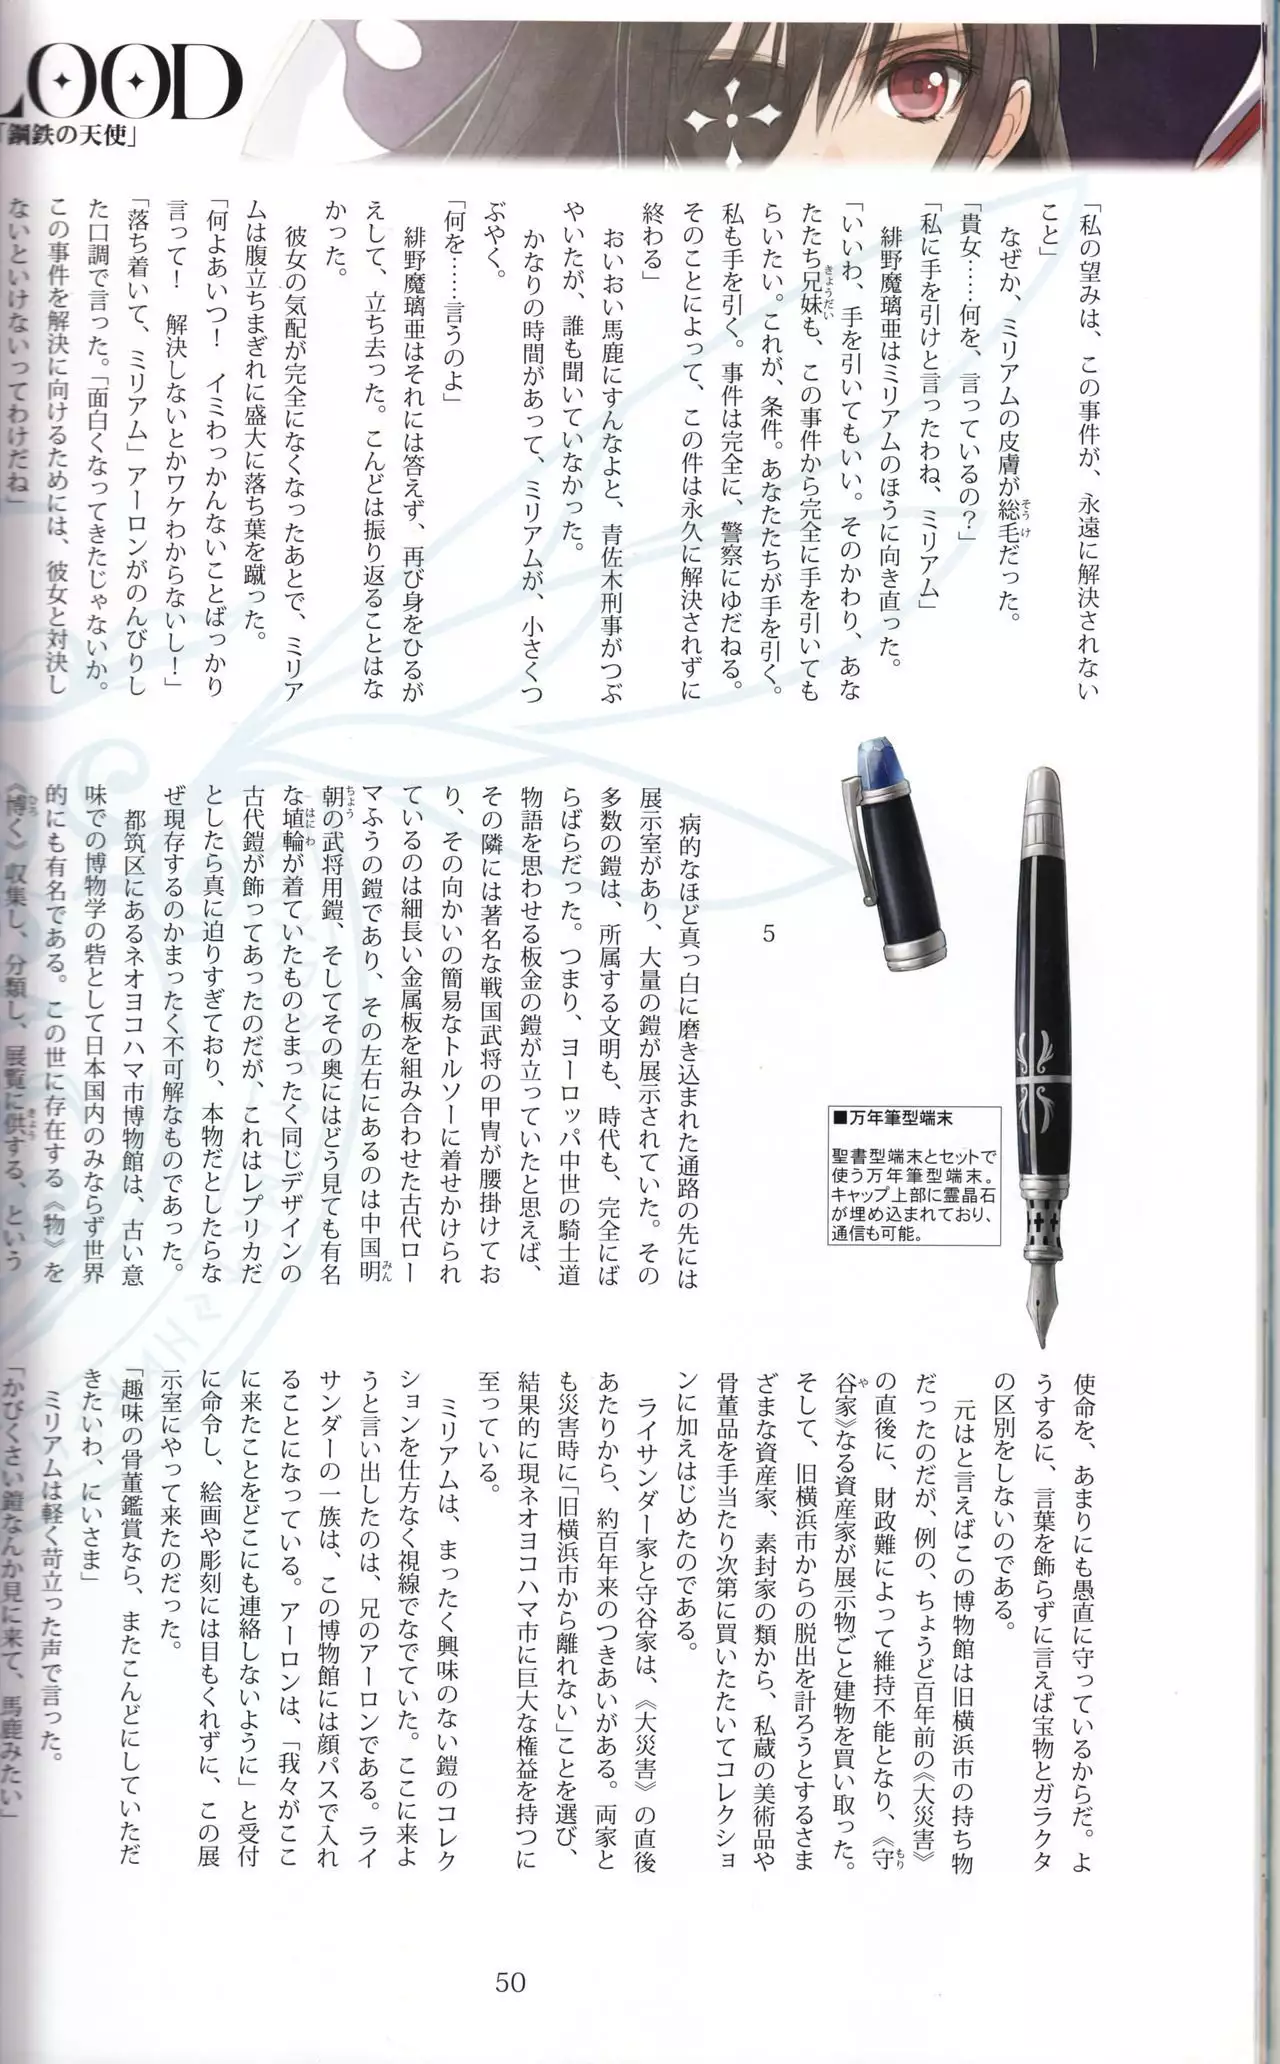 LOOD
「鋼鉄の天使」
「私の望みは、この事件が、永遠に解決されない
こと」
なぜか、ミリアムの皮膚が総毛だった。
「貴女……何を、言っているの？」
「私に手を引けと言ったわね、ミリアム」
緋野魔璃亜はミリアムのほうに向き直った。
「いいわ、手を引いてもいい。そのかわり、あな
たたち兄妹も、この事件から完全に手を引いても
らいたい。これが、条件。あなたたちが手を引く。
私も手を引く。事件は完全に、警察にゆだねる。
そのことによって、この件は永久に解決されずに
終わる」
おいおい馬鹿にすんなよと、青佐木刑事がつぶ
やいたが、誰も聞いていなかった。
かなりの時間があって、ミリアムが、小さくつ
ぶやく。
「何を……言うのよ」
緋野魔璃亜はそれには答えず、再び身をひるが
えして、立ち去った。こんどは振り返ることはな
かった。
彼女の気配が完全になくなったあとで、ミリア
ムは腹立ちまぎれに盛大に落ち葉を蹴った。
「何よあいつ！　イミわっかんないことばっかり
言って！　解決しないとかワケわからないし！」
「落ち着いて、ミリアム」アーロンがのんびりし
た口調で言った。「面白くなってきたじゃないか。
この事件を解決に向けるためには、彼女と対決し
ないといけないってわけだね」
5
病的なほど真っ白に磨き込まれた通路の先には
展示室があり、大量の鎧が展示されていた。その
多数の鎧は、所属する文明も、時代も、完全にば
らばらだった。つまり、ヨーロッパ中世の騎士道
物語を思わせる板金の鎧が立っていたと思えば、
その隣には著名な戦国武将の甲冑が腰掛けてお
り、その向かいの簡易なトルソーに着せかけられ
ているのは細長い金属板を組み合わせた古代ロー
マふうの鎧であり、その左右にあるのは中国明
朝の武将用鎧、そしてその奥にはどう見ても有名
な埴輪が着ていたものとまったく同じデザインの
古代鎧が飾ってあったのだが、これはレプリカだ
としたら真に迫りすぎており、本物だとしたらな
ぜ現存するのかまったく不可解なものであった。
都筑区にあるネオヨコハマ市博物館は、古い意
味での博物学の砦として日本国内のみならず世界
的にも有名である。この世に存在する《物》を
《博く》収集し、分類し、展覧に供する、という
■万年筆型端末
聖書型端末とセットで
使う万年筆型端末。
キャップ上部に霊晶石
が埋め込まれており、
通信も可能。
使命を、あまりにも愚直に守っているからだ。よ
うするに、言葉を飾らずに言えば宝物とガラクタ
の区別をしないのである。
元はと言えばこの博物館は旧横浜市の持ち物
だったのだが、例の、ちょうど百年前の《大災害》
の直後に、財政難によって維持不能となり、《守
谷家》なる資産家が展示物ごと建物を買い取った。
そして、旧横浜市からの脱出を計ろうとするさま
ざまな資産家、素封家の類から、私蔵の美術品や
骨董品を手当たり次第に買いたたいてコレクショ
ンに加えはじめたのである。
ライサンダー家と守谷家は、《大災害》の直後
あたりから、約百年来のつきあいがある。両家と
も災害時に「旧横浜市から離れない」ことを選び、
結果的に現ネオヨコハマ市に巨大な権益を持つに
至っている。
ミリアムは、まったく興味のない鎧のコレク
ションを仕方なく視線でなでていた。ここに来よ
うと言い出したのは、兄のアーロンである。ライ
サンダーの一族は、この博物館には顔パスで入れ
ることになっている。アーロンは、「我々がここ
に来たことをどこにも連絡しないように」と受付
に命令し、絵画や彫刻には目もくれずに、この展
示室にやって来たのだった。
「趣味の骨董鑑賞なら、またこんどにしていただ
きたいわ、にいさま」
ミリアムは軽く苛立った声で言った。
「かびくさい鎧なんか見に来て、馬鹿みたい」
50